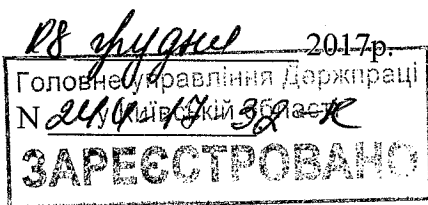 грудня 2017р.
Головне управління Держпраці
N у Київській області
ЗАРЕЄСТРОВАНО